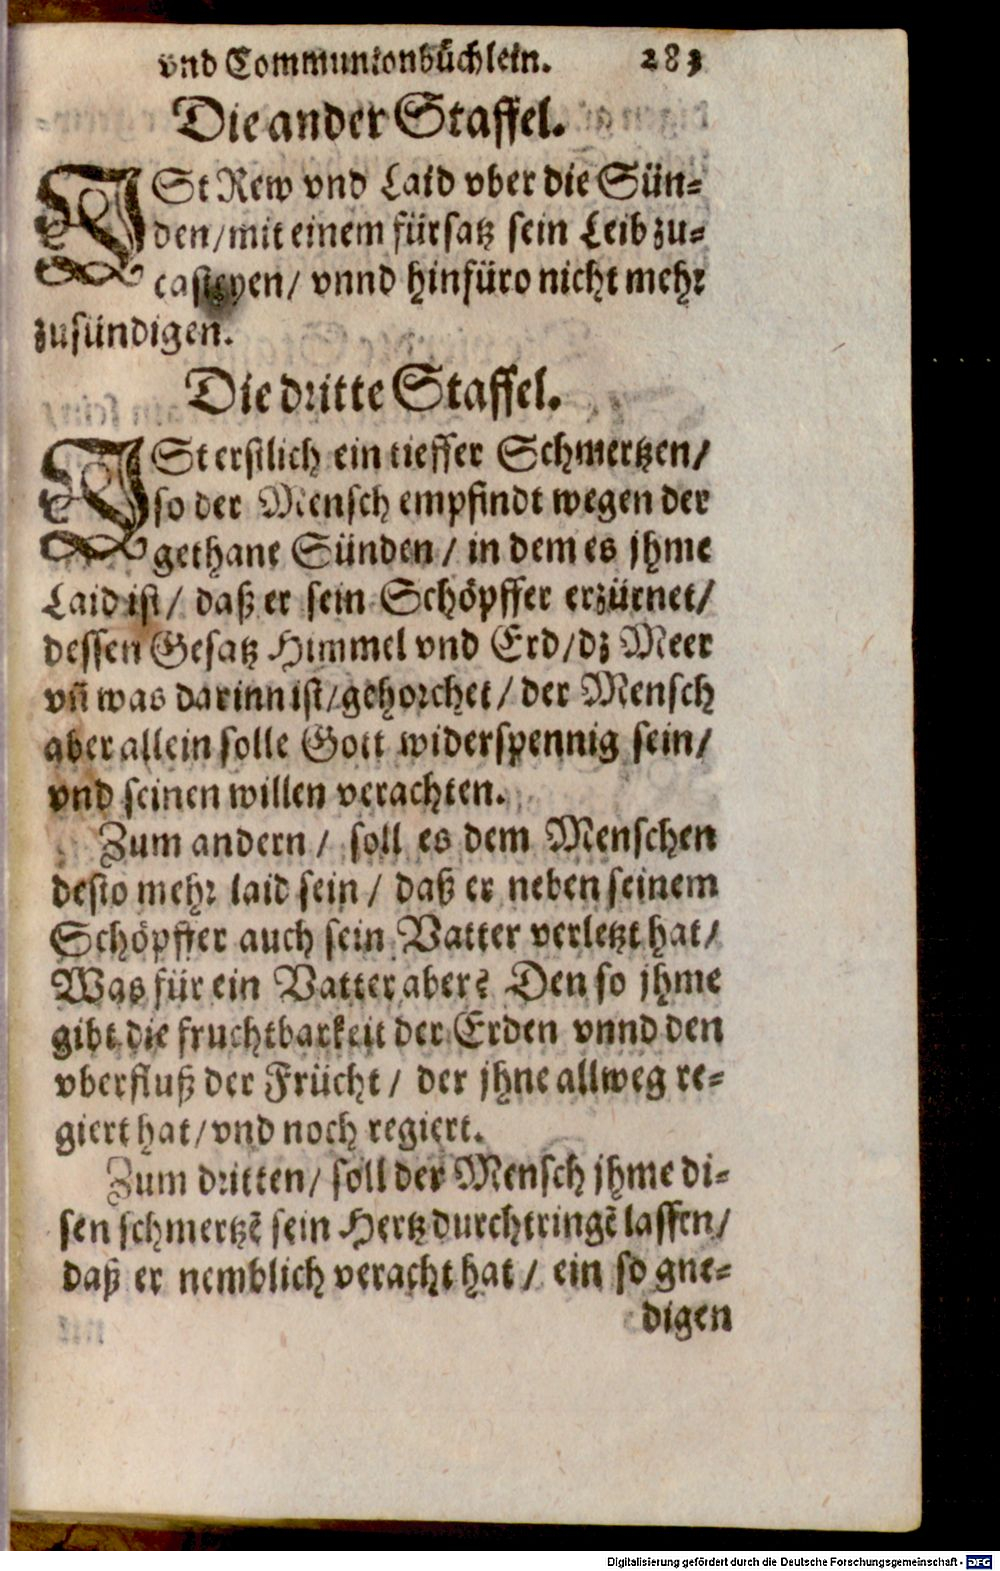 vnd Communionbüchlein. 283
Die ander Staffel.
ISt Rew vnd Laid vber die Sün⸗
den/ mit einem fürsatz sein Leib zu⸗
casteyen/ vnnd hinfüro nicht mehr
zusündigen.
Die dritte Staffel.
ISt erstlich ein tieffer Schmertzen/
so der Mensch empfindt wegen der
gethane Sünden/ in dem es jhme
Laid ist/ daß er sein Schöpffer erzürnet/
dessen Gesatz Himmel vnd Erd/ dz Meer
vñ was darinn ist/ gehorchet/ der Mensch
aber allein solle Gott widerspennig sein/
vnd seinen willen verachten.
Zum andern/ soll es dem Menschen
desto mehr laid sein/ daß er neben seinem
Schöpffer auch sein Vatter verletzt hat/
Was für ein Vatter aber? Den so jhme
gibt die fruchtbarkeit der Erden vnnd den
vberfluß der Frücht/ der jhne allweg re⸗
giert hat/ vnd noch regiert.
Zum dritten/ soll der Mensch jhme di⸗
sen schmertzē sein Hertz durchtringē lassen/
daß er nemblich veracht hat/ ein so gne⸗
digen
Digitalisierung gefördert durch die Deutsche Forschungsgemeinschaft - DFG